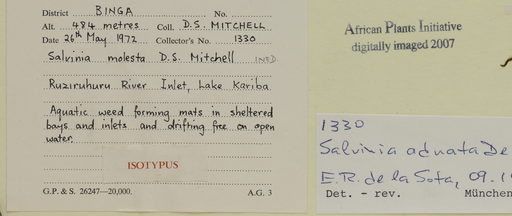 District BINGA No.
Alt. 484 metres Coll. D.S. MITCHELL
Date 26th May 1972 Collector's No. 1330
Salvinia molesta D.S. Mitchell INED
Ruziruhuru River Inlet, Lake Kariba
Aquatic weed forming mats in sheltered
bays and inlets and drifting free on open
water.
ISOTYPUS
G.P. & S. 26247—20,000. A.G. 3
African Plants Initiative
digitally imaged 2007
1330
Salvinia adnata De
E.R. de la Sota, 09.1
Det. - rev. München